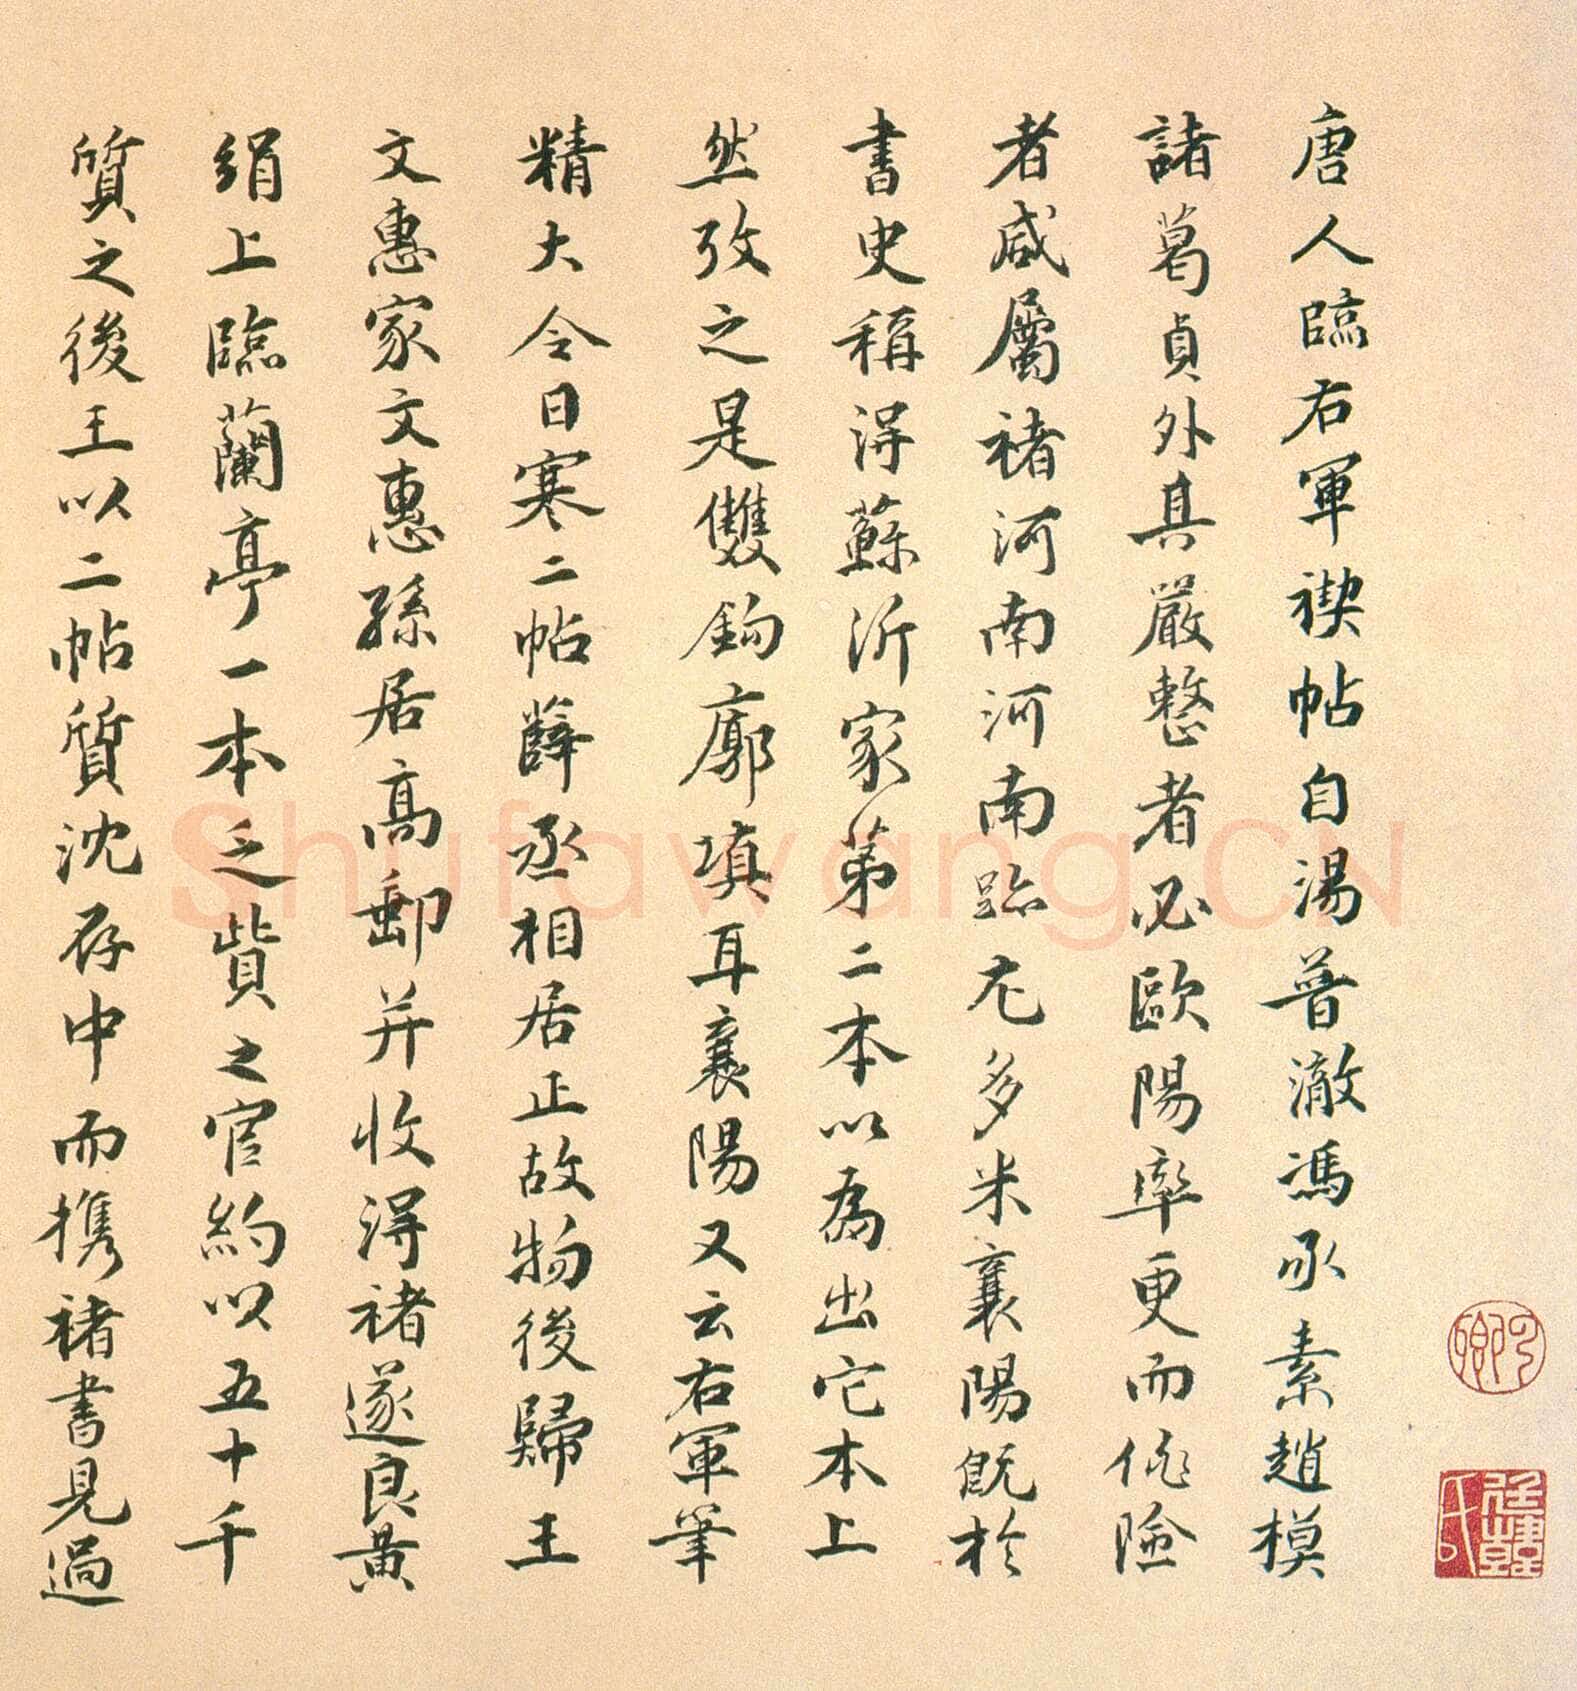 唐人臨右軍禊帖自湯普澈馮承素趙模
諸葛貞外其嚴整者必歐陽率更而佻險
者咸屬褚河南河南跡尤多米襄陽既於
書史稱得蘇沂家第二本以為出它本上
然攷之是雙鈎廓填耳襄陽又云右軍筆
精大令日寒二帖薛丞相居正故物後歸王
文惠家文惠孫居高郵并收得褚遂良黃
絹上臨蘭亭一本乏貲之官約以五十千
質之後王以二帖質沈存中而攜褚書見過
Shufawang.CN